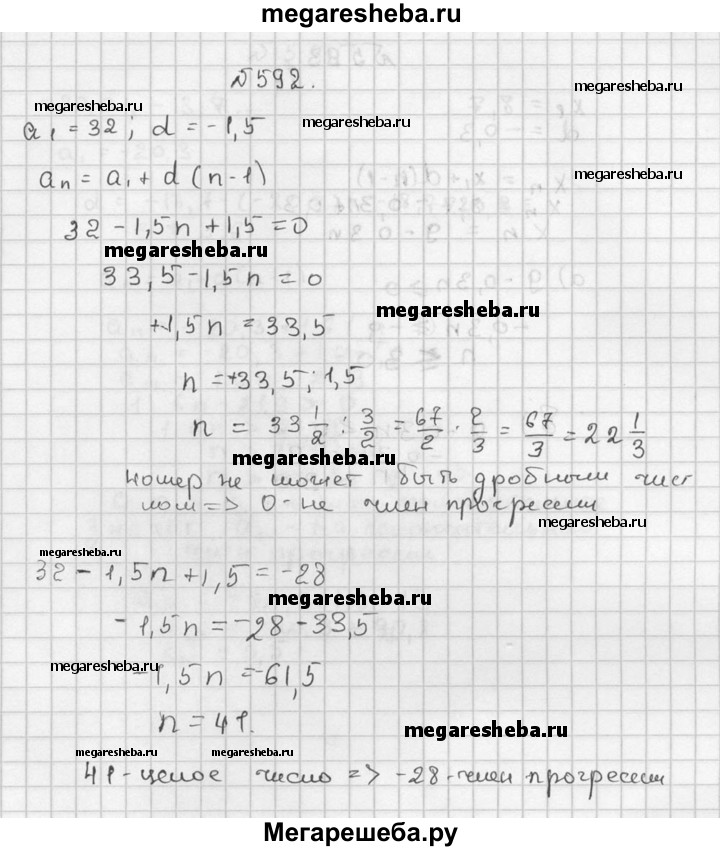 megaresheba.ru
№592.
megaresheba.ru
a₁ = 32; d = -1,5
megaresheba.ru
aₙ = a₁ + d (n-1)
megaresheba.ru
32 - 1,5n + 1,5 = 0
megaresheba.ru
33,5 - 1,5n = 0
megaresheba.ru
+1,5n = 33,5
n = +33,5 : 1,5
n = 33 1/2 : 3/2 = 67/2 · 2/3 = 67/3 = 22 1/3
megaresheba.ru
номер не может быть дробным чис
лом => 0 - не член прогрессии
megaresheba.ru
megaresheba.ru
32 - 1,5n + 1,5 = -28
megaresheba.ru
-1,5n = -28 - 33,5
megaresheba.ru
-1,5n = -61,5
n = 41.
megaresheba.ru
megaresheba.ru
megaresheba.ru
41 - целое число => -28 - член прогрессии
Мегарешеба.ру